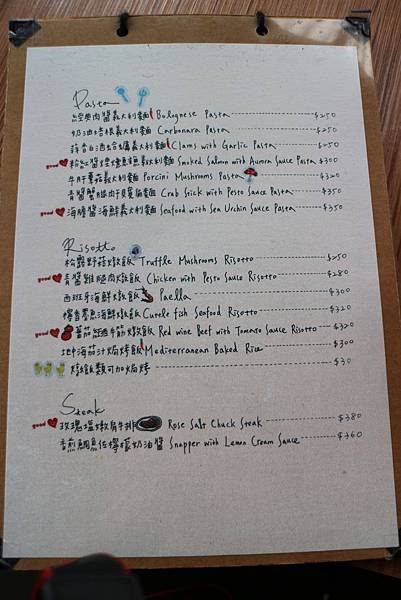 Pasta
經典肉醬義大利麵 Bolognese Pasta $250
奶油培根義大利麵 Carbonara Pasta $250
蒜香白酒蛤蠣義大利麵 Clams with Garlic Pasta $250
good 粉紅醬煙燻鮭魚義大利麵 Smoked Salmon with Aurora Sauce Pasta $300
牛肝蕈菇義大利麵 Porcini Mushrooms Pasta $320
青醬蟹腿肉干貝義大利麵 Crab Stick with Pesto Sauce Pasta $350
good 海膽醬海鮮義大利麵 Seafood with Sea Urchin Sauce Pasta $350
Risotto
松露野菇燉飯 Truffle Mushrooms Risotto $250
good 青醬雞腿肉燉飯 Chicken with Pesto Sauce Risotto $280
西班牙海鮮燉飯 Paella $300
墨魚海鮮燉飯 fish Seafood Risotto $320
good 蕃茄紅酒牛筋燉飯 Red wine Beef with Tomato Sauce Risotto $320
地中海茄汁焗烤飯 Mediterranean Baked Rice $300
燉飯類可加焗烤 $30
Steak
good 玫瑰塩嫩肩牛排 Rose Salt Chuck Steak $380
香煎鯛魚佐檸檬奶油醬 Snapper with Lemon Cream Sauce $360